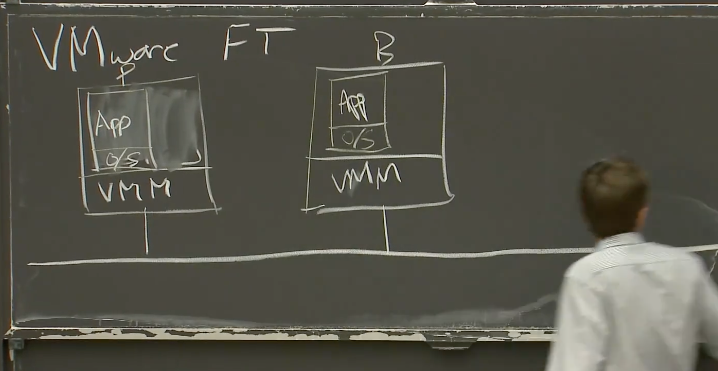 VMware FT
P
App
O/S
VMM
B
App
O/S
VMM